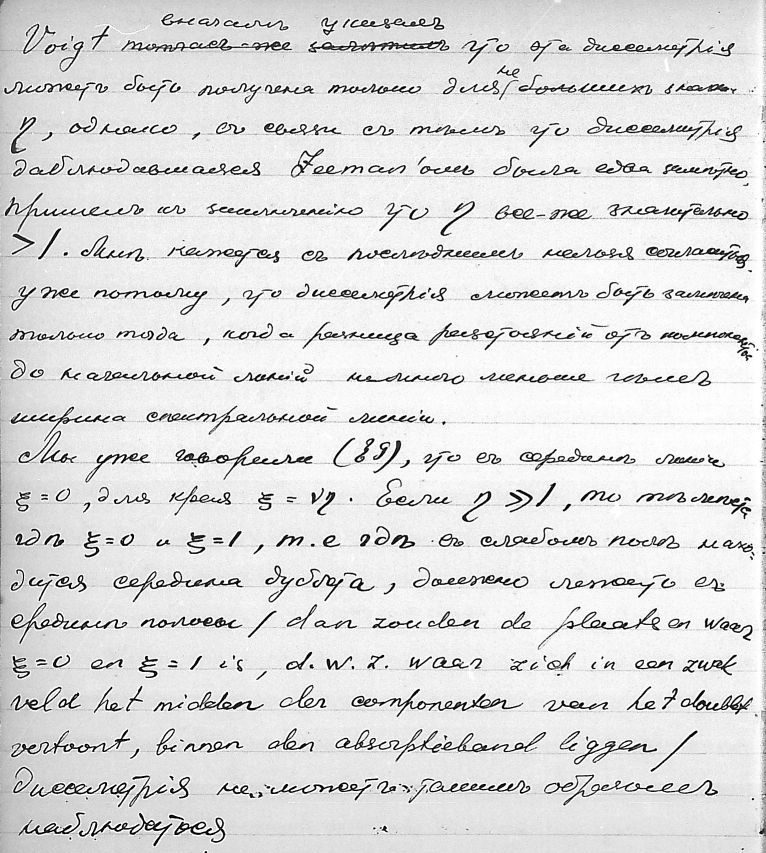 вначалѣ указалъ
Voigt тотчасъ-же замѣтилъ что эта дисимметрія
можетъ быть получена только для не большихъ знач.
η, однако, въ связи съ тѣмъ что диссиметрія
наблюдавшаяся Zeeman'омъ была едва замѣтна,
пришелъ къ заключенію что η все-же значительно
>1. Мнѣ кажется съ послѣднимъ нельзя согласиться
уже потому, что диссиметрія можетъ быть замѣчена
только тогда, когда разница разстояній отъ компонентовъ
до начальной линіи немного меньше чѣмъ
ширина спектральной линіи.
Мы уже говорили (§9), что въ серединѣ линіи
ξ=0, для края ξ = νη. Если η ≫ 1, то тѣ мѣста
гдѣ ξ=0 и ξ=1, т.е гдѣ въ слабомъ полѣ нахо-
дится середина дублета, должно лежать въ
срединѣ полосы / dan zouden de plaatsen waar
ξ=0 en ξ=1 is, d.w.z. waar zich in een zwak
veld het midden der componenten van het doublet
vertoont, binnen den absorptieband liggen /
Диссиметрія не можетъ такимъ образомъ
наблюдаться